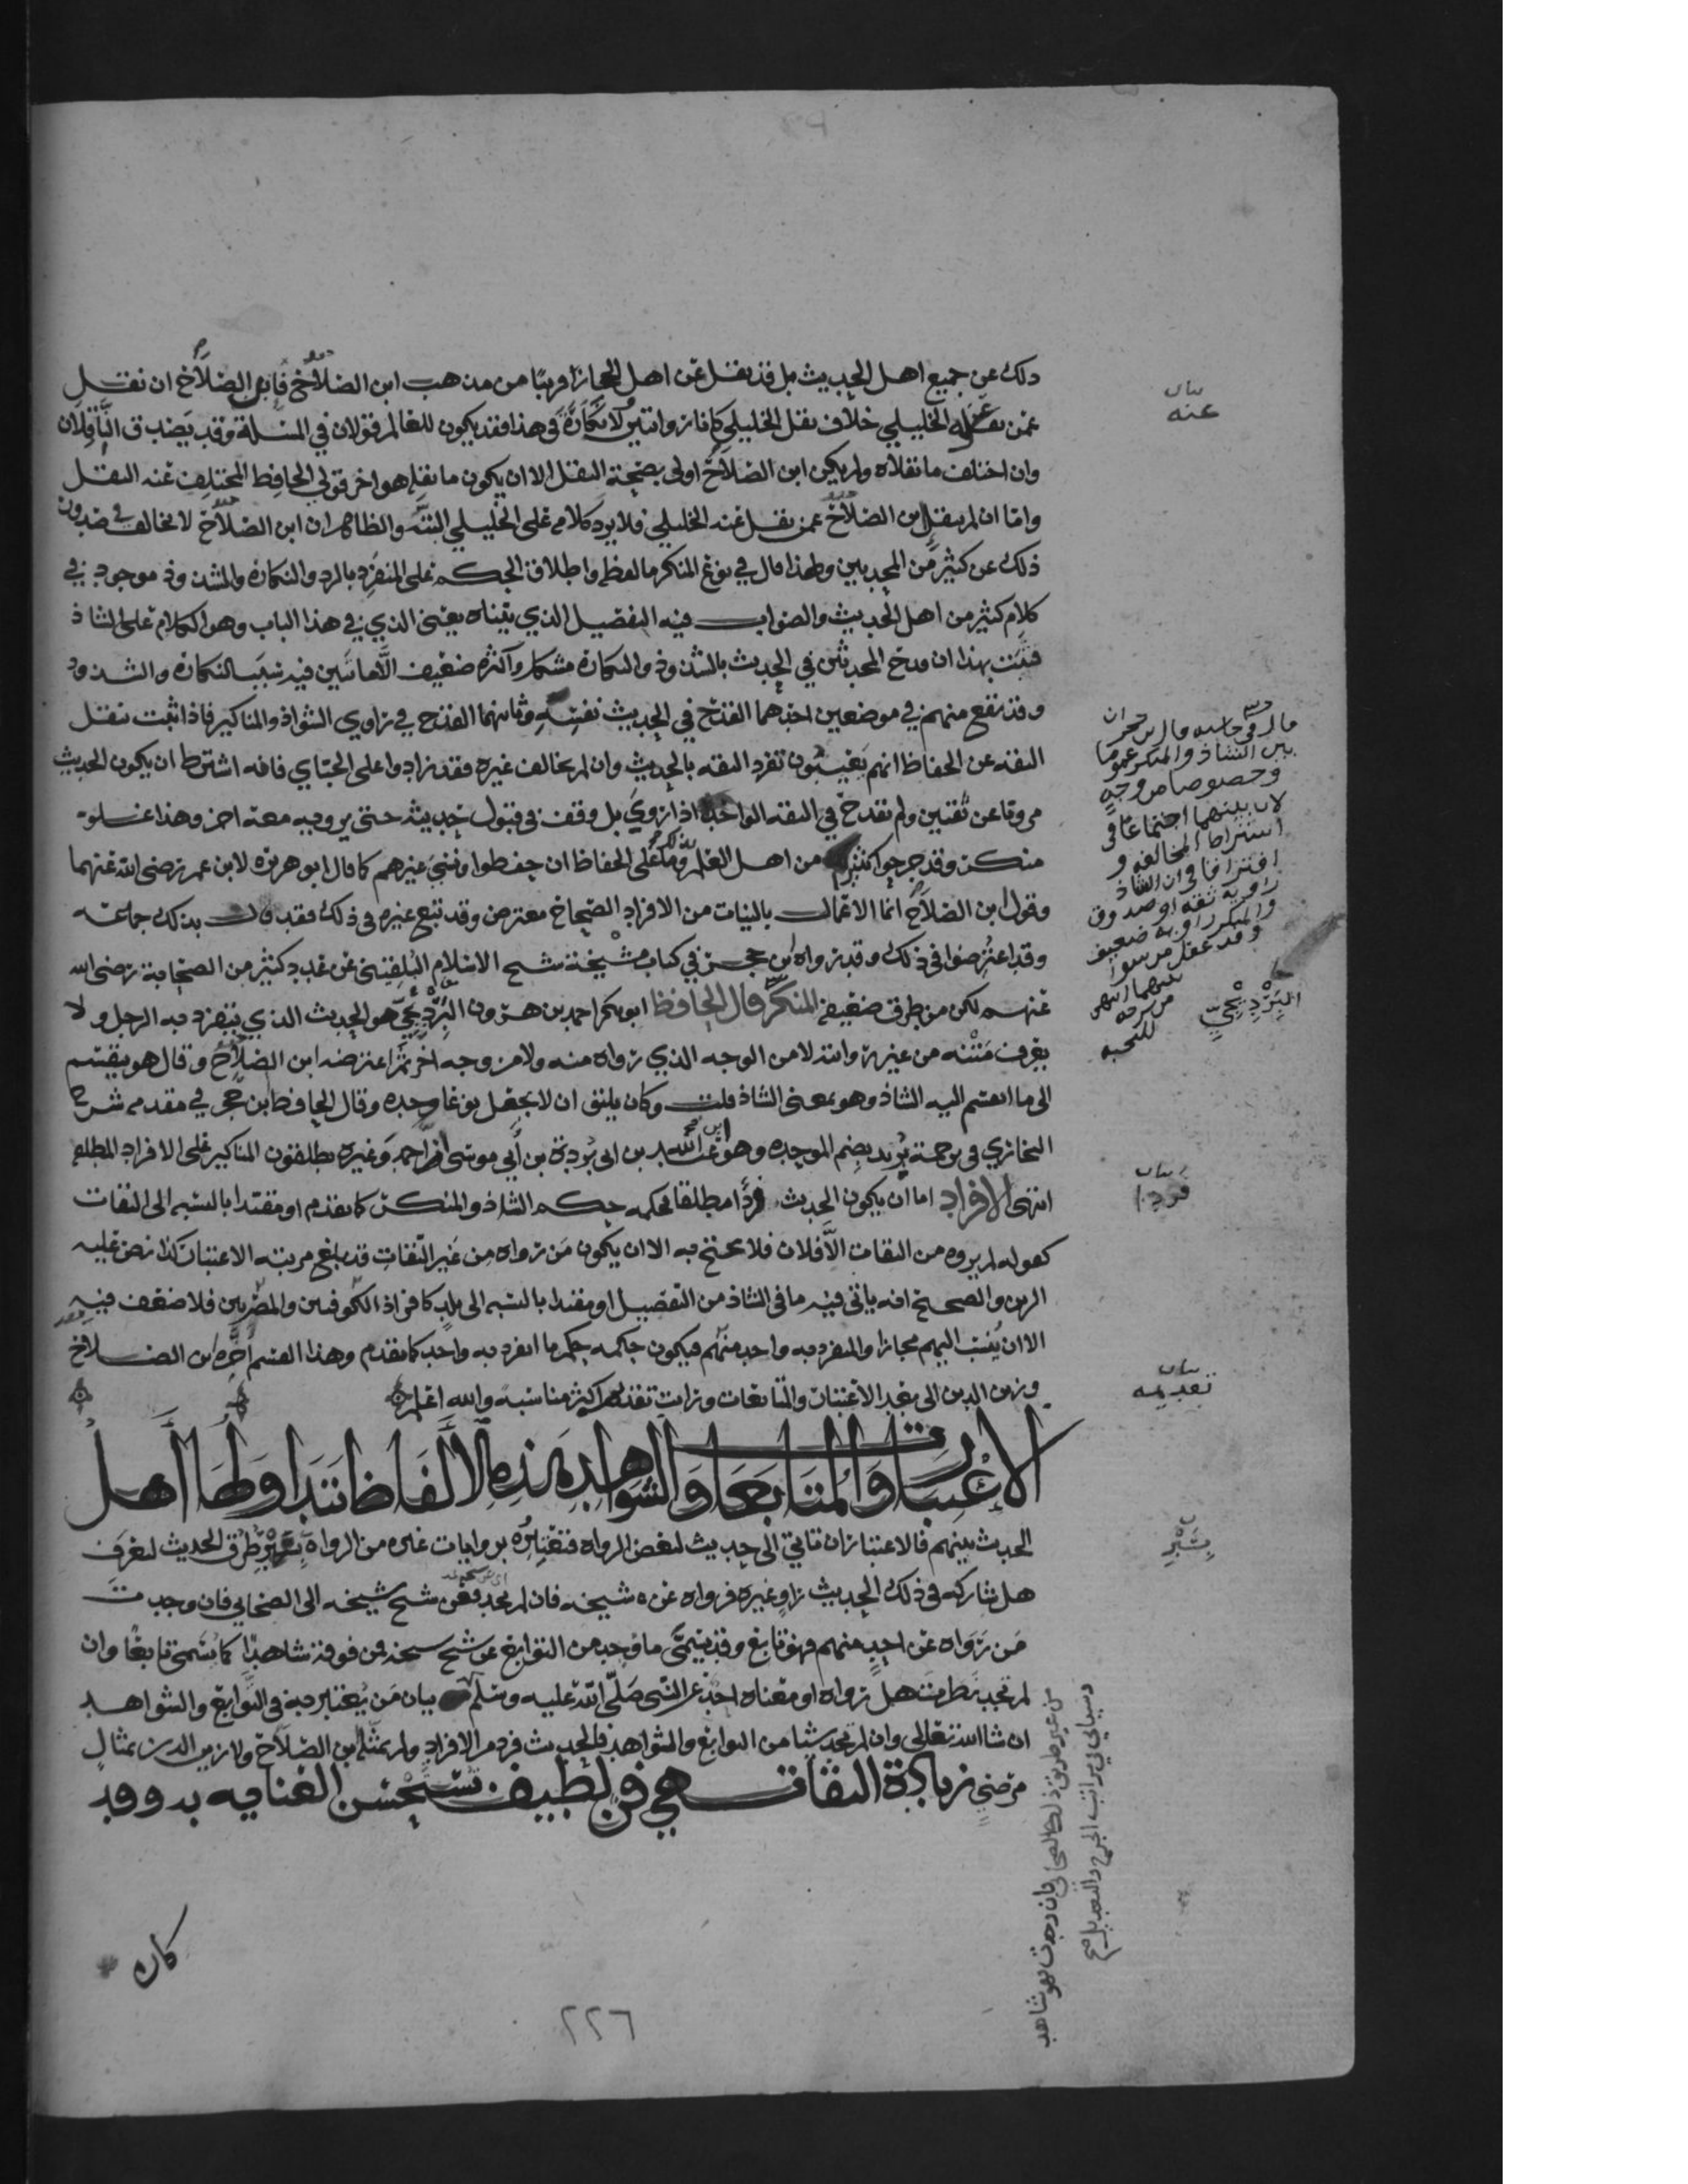 ذلك عن جميع اهل الحديث بل قد نقل عن اهل الحجاز قريبا من مذهب ابن الصلاح فابن الصلاح ان نقل
عمن نقل عنه الخليلي خلاف نقل الخليلي كانا روايتين لا نكارة في هذا فقد يكون للعالم قولان في المسئلة وقد يصدق الناقلان
وان اختلف ما نقلاه ولم يكن ابن الصلاح اولى بصحة النقل الا ان يكون ما نقله هو اخر قولي الحافظ المختلف عنه النقل
واما ان لم ينقل ابن الصلاح عمن نقل عنه الخليلي فلا يرد كلامه على الخليلي البته والظاهر ان ابن الصلاح لا يخالف في صدور
ذلك عن كثير من المحدثين ولهذا قال في نوع المنكر ما لفظه واطلاق الحكم على المنفرد بالرد والنكارة والشذوذ موجود في
كلام كثير من اهل الحديث والصواب فيه التفصيل الذي بيناه يعني الذي في هذا الباب وهو الكلام على الشاذ
فثبت بهذا ان قدح المحدثين في الحديث بالشذوذ والنكارة مشكل واكثره ضعيف الا ما تبين فيه سبب النكارة والشذوذ
وقد يقع منهم في موضعين احدهما القدح في الحديث نفسه وثانيهما القدح في راوي الشواذ والمناكير فاذا ثبت نقل
الثقة عن الحفاظ انهم يعيبون تفرد الثقه بالحديث وان لم يخالف غيره فقد زادوا على الجبائي فانه اشترط ان يكون الحديث
مرويا عن ثقتين ولم يقدح في الثقه الواحد اذا روى بل وقف في قبول حديثه حتى يرويه معه اخر وهذا غلو
منكر وقد جرحوا كثيرا من اهل العلم بذلك وما على الحفاظ ان حفظوا ونسي غيرهم كما قال ابو هريرة لابن عمر رضي الله عنهما
وقول ابن الصلاح انما الاعمال بالنيات من الافراد الصحاح معترض وقد تبع غيره في ذلك فقد قال بذلك جماعة
وقد اعترضوا في ذلك وقد رواه ابن حجر في كتاب مشيخة شيخ الاسلام البلقيني عن عدد كثير من الصحابة رضي الله
عنهم لكن من طرق ضعيفه المنكر قال الحافظ ابو بكر احمد بن هرون البرديجي هو الحديث الذي ينفرد به الرجل ولا
يعرف متنه من غير روايته لا من الوجه الذي رواه منه ولا من وجه اخر ثم اعترضه ابن الصلاح وقال هو ينقسم
الى ما انقسم اليه الشاذ وهو بمعنى الشاذ قلت وكان يليق ان لا يجعل نوعا وحده وقال الحافظ ابن حجر في مقدمة شرح
البخاري في ترجمة بريد بضم الموحده وهو ابن عبد الله بن ابي بردة بن أبي موسى احمد وغيره يطلقون المناكير على الافراد المطلقه
انتهى الافراد اما ان يكون الحديث فردا مطلقا فحكمه حكم الشاذ والمنكر كما تقدم او مقيدا بالنسبه الى الثقات
كقوله لم يروه من الثقات الا فلان فلا يحتج به الا ان يكون من رواه من غير الثقات قد بلغ مرتبة الاعتبار كذا نص عليه
الزين والصحيح انه ياتي فيه ما في الشاذ من التفصيل او مقيدا بالنسبه الى بلد كافراد الكوفيين والمصريين فلا ضعف فيه
الا ان ينسب اليهم مجازا والمنفرد به واحد منهم فيكون حكمه حكم ما انفرد به واحد كما تقدم وهذا القسم اخره ابن الصلاح
وزين الدين الى بعد الاعتبار والمتابعات ورايت تقديمه اكثر مناسبه والله اعلم
الاعتبار والمتابعات والشواهد هذه الالفاظ تتداولها اهل
الحديث بينهم فالاعتبار ان تاتي الى حديث لبعض الرواه فتعتبره بروايات غيره من الرواه بسبر طرق الحديث لتعرف
هل شاركه في ذلك الحديث راو غيره فرواه عن شيخه فان لم تجد فعن شيخ شيخه الى الصحابي فان وجدت
من رواه عن احد منهم فهو تابع وقد يسمى ما وجد من التوابع عن شيخ شيخه فمن فوقه شاهدا كما يسمى تابعا وان
لم تجد نظرت هل رواه او معناه احد عن النبي صلى الله عليه وسلم بيان من يعتبر به في التوابع والشواهد
ان شا الله تعالى وان لم تجد شيئا من التوابع والشواهد فالحديث فرد من الافراد ولم يمثله ابن الصلاح ولا زين الدين بمثال
مرضي زيادة الثقات هي فن لطيف تستحسن العنايه به وقد
كان
٢٢٦
بيان
عنه
قال في حاشيه قال ابن حجر ان
بين الشاذ والمنكر عموما
وخصوصا من وجه
لان بينهما اجتماعا في
اشتراط المخالفه و
افتراقا في ان الشاذ
راويه ثقه او صدوق
والمنكر راويه ضعيف
وقد غفل من سوا
بينهما انتهى
من شرحه
للنخبه
البرديجي
بيان
فردا
بيان
تقديمه
بسبر
من غير طريق ذلك الصحابي فان وجدت فهو شاهد
وسياتي في مراتب الجرح والتعديل صح